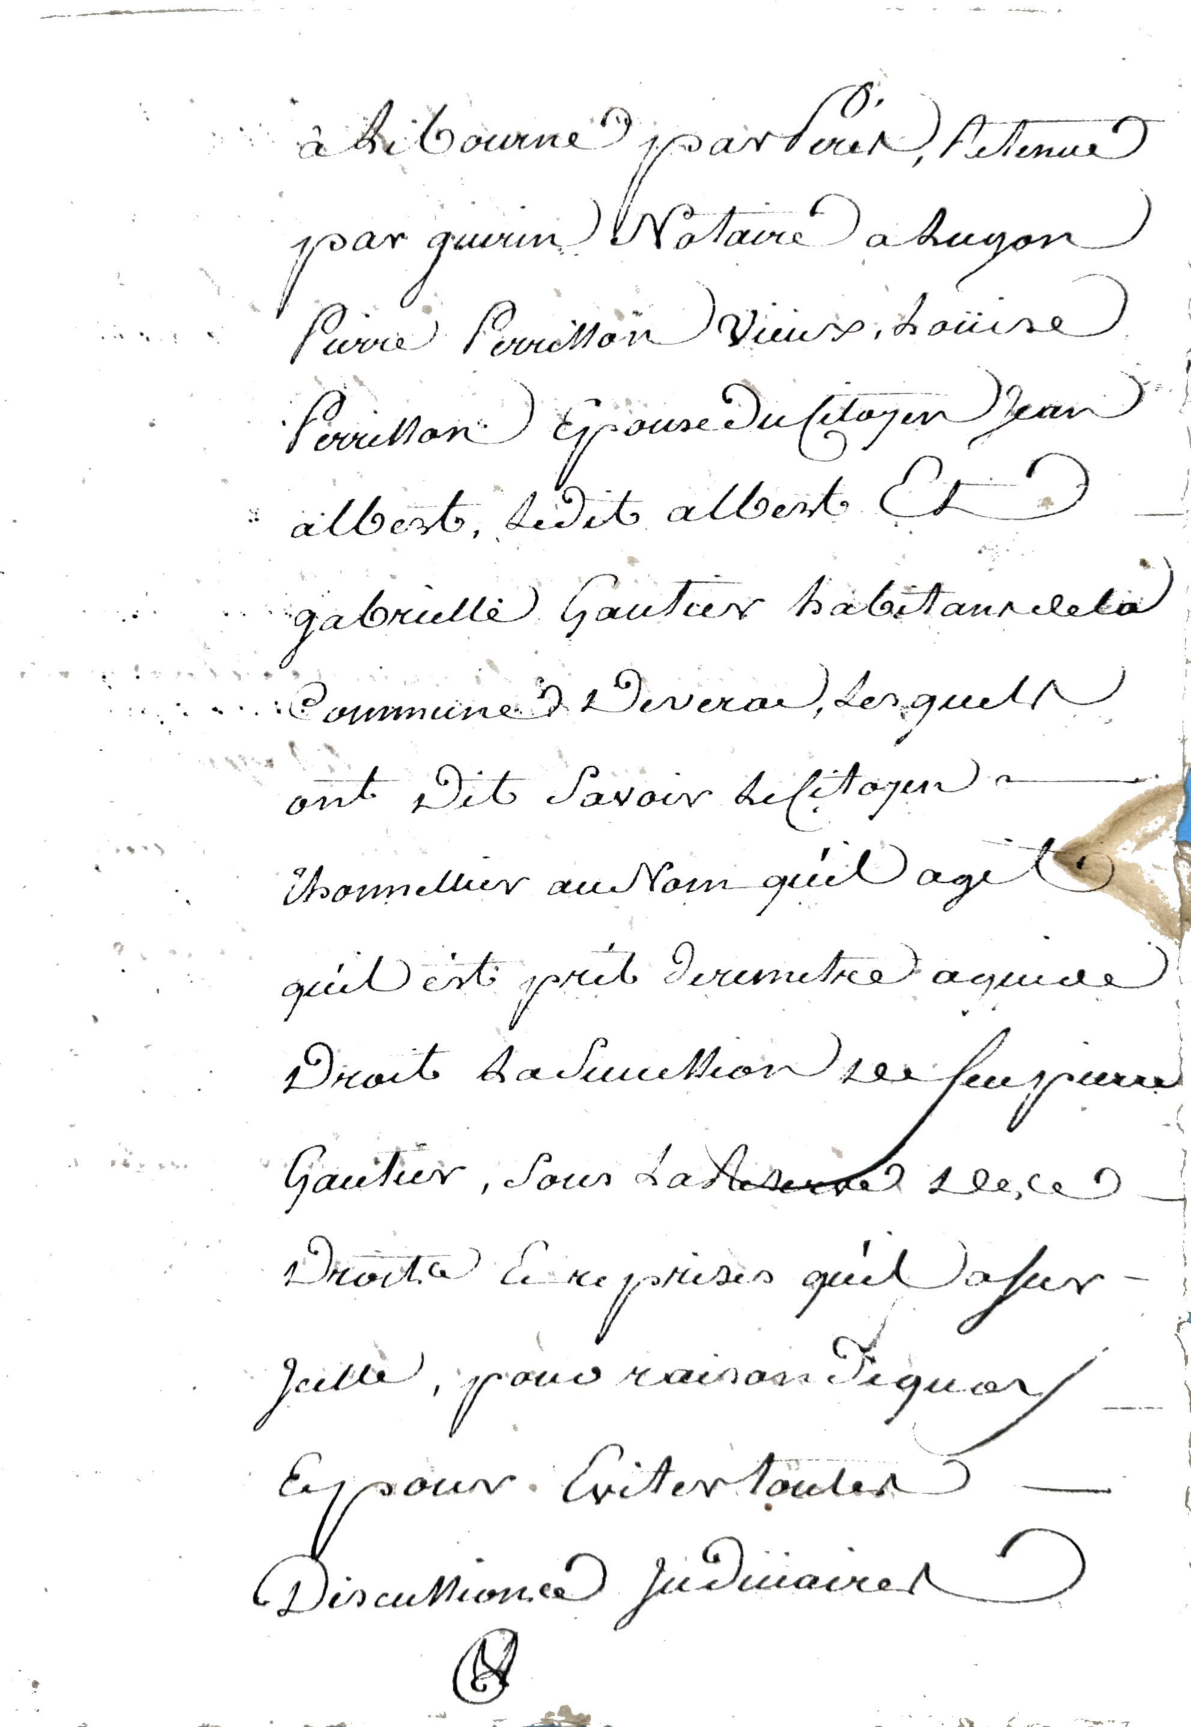 à Libourne par Peres, Retenue
par guerin Notaire a Lugon
Pierre Perrisson vieux, Loüise
Perrisson Epouse Du Citoyen Jean
albert, Ledit albert Et
gabrielle Gautier habitans de la
Commune De verac, Lesquels
ont Dit Savoir Le Citoyen
Thonnellier au Nom qu'il agit
qu'il ést prét de remetre a qui de
Droit La Succession de feu pierre
Gautier, Sous La Reserve de ce
Droits Et reprises qu'il a sur
Jcelle, pour raison De quoy
Et pour Eviter toutes
Discussions Judiciaires